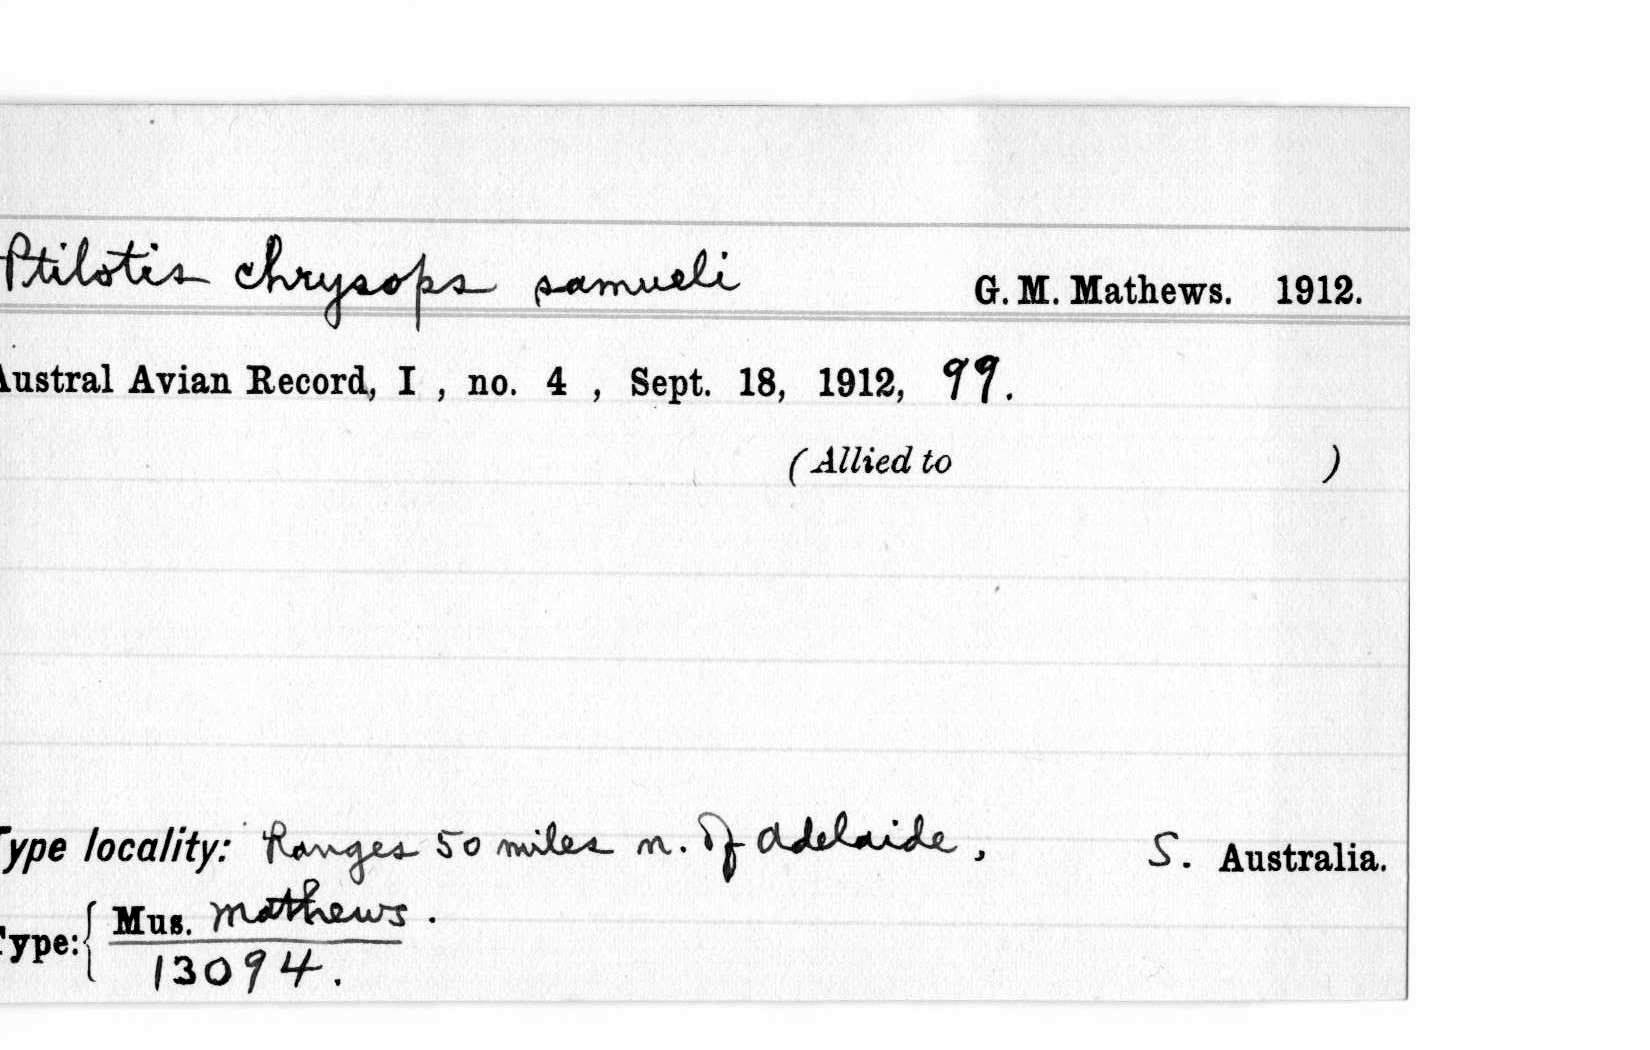 Ptilotis chrysops samueli G. M. Mathews. 1912.
Austral Avian Record, I , no. 4 , Sept. 18, 1912, 99.
(Allied to )
Type locality: Ranges 50 miles n. of Adelaide, S. Australia.
Type: { Mus. Mathews.
13094.